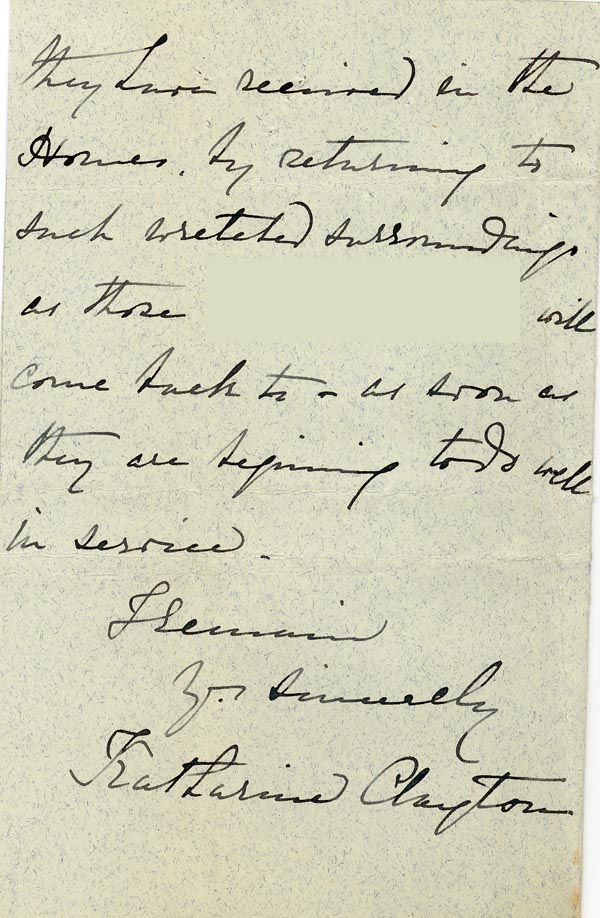 they have received in the
Homes, by returning to
such wretched surroundings
as those will
come back to - as soon as
they are begining to do well
in service.
I remain
Yr. sincerely
Katharine Clayton